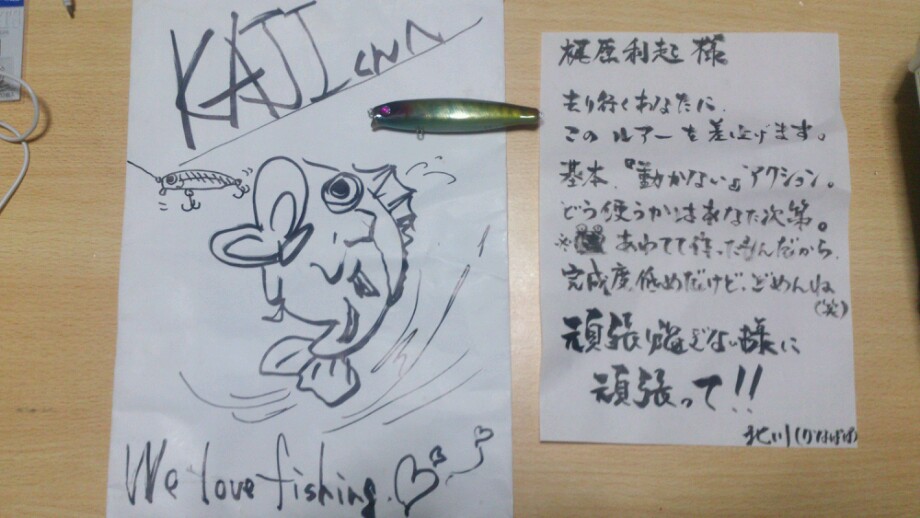 KAJI くんへ
We love fishing.
梶原利起 様
去り行くあなたに
このルアーを差上げます。
基本、『動かない』アクション。
どう使うかはあなた次第。
※ あわてて作ったもんだから
完成度低めだけど、ごめんね
(笑)
頑張り過ぎない様に
頑張って!!
北川(かなぱぱ)